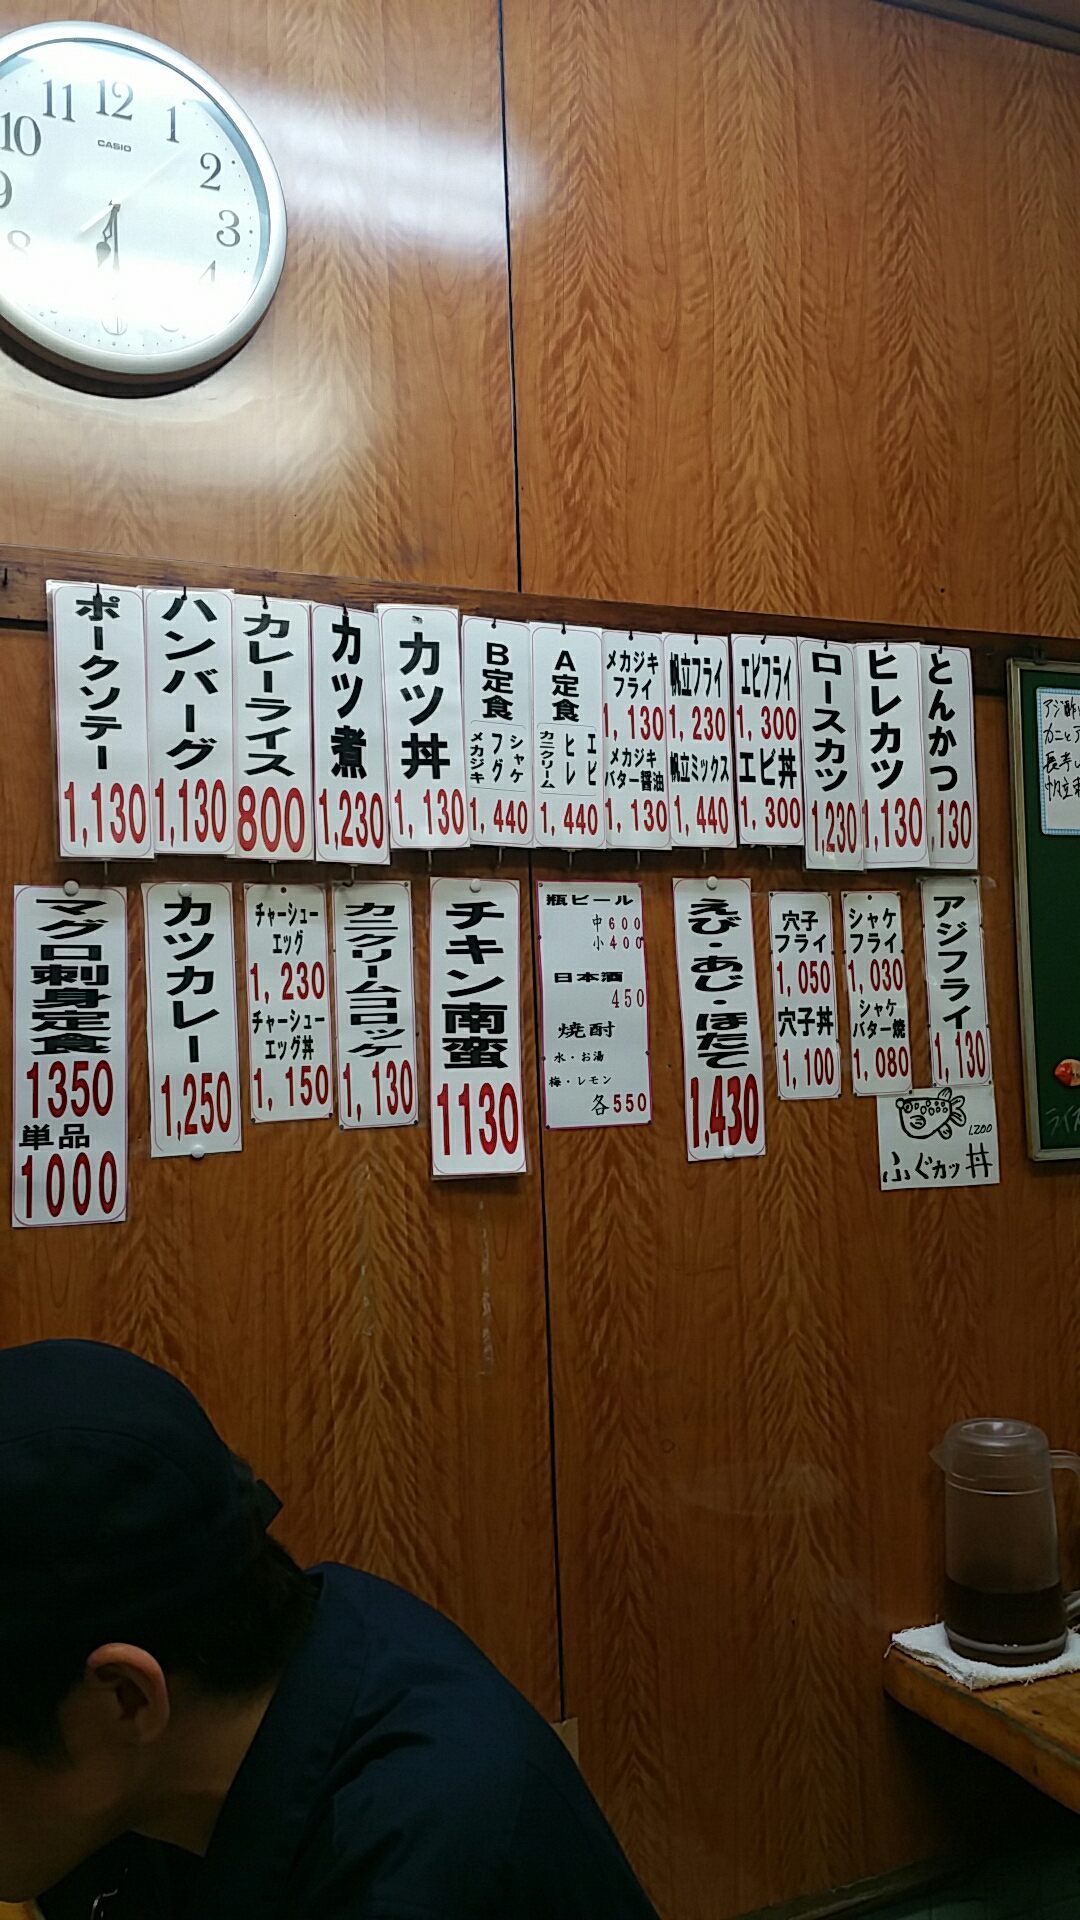 11 12 1
10 2
9 3
8 4
CASIO
ポークソテー
1,130
ハンバーグ
1,130
カレーライス
800
カツ煮
1,230
カツ丼
1,130
B定食
シャケ
フグ
メカジキ
1,440
A定食
エビ
ヒレ
カニクリーム
1,440
メカジキ
フライ
1,130
メカジキ
バター醤油
1,130
帆立フライ
1,230
帆立ミックス
1,440
エビフライ
1,300
エビ丼
1,300
ロースカツ
1,230
ヒレカツ
1,130
とんかつ
,130
マグロ刺身定食
1350
単品
1000
カツカレー
1,250
チャーシュー
エッグ
1,230
チャーシュー
エッグ丼
1,150
カニクリームコロッケ
1,130
チキン南蛮
1130
瓶ビール
中600
小400
日本酒
450
焼酎
水・お湯
梅・レモン
各550
えび・あじ・ほたて
1,430
穴子
フライ
1,050
穴子丼
1,100
シャケ
フライ
1,030
シャケ
バター焼
1,080
アジフライ
1,130
1,200
ふぐカツ丼
アジ酢
カニと
帆立